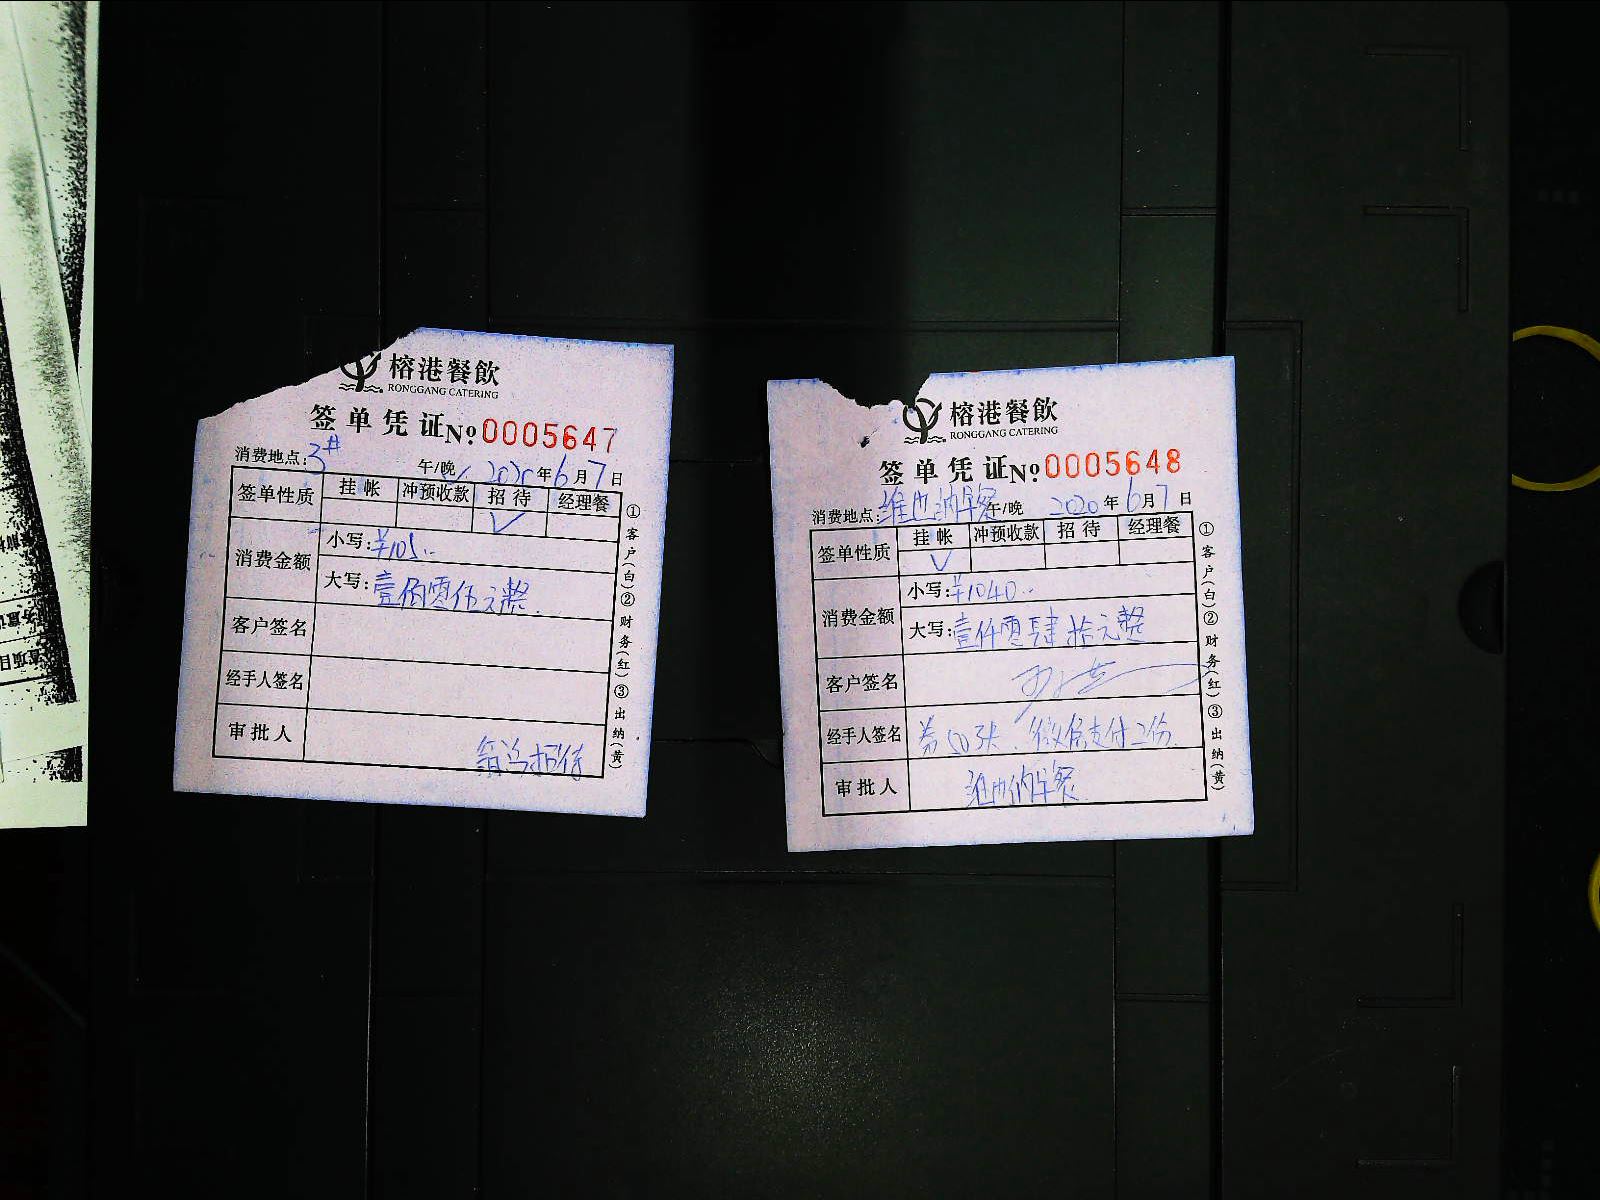 榕港餐飲
RONGGANG CATERING
签单凭证 №0005647
消费地点:3# 午/晚 2020年6月7日
签单性质 挂帐 冲预收款 招待 经理餐
√
消费金额 小写:¥105..
大写:壹佰零伍元整.
客户签名
经手人签名
审批人
招待
①客户(白)②财务(红)③出纳(黄)
榕港餐飲
RONGGANG CATERING
签单凭证 №0005648
消费地点:维也纳早餐 午/晚 2020年6月7日
签单性质 挂帐 冲预收款 招待 经理餐
√
消费金额 小写:¥1040..
大写:壹仟零肆拾元整
客户签名
经手人签名 券50张.微信支付二份.
审批人 维也纳早餐.
①客户(白)②财务(红)③出纳(黄)